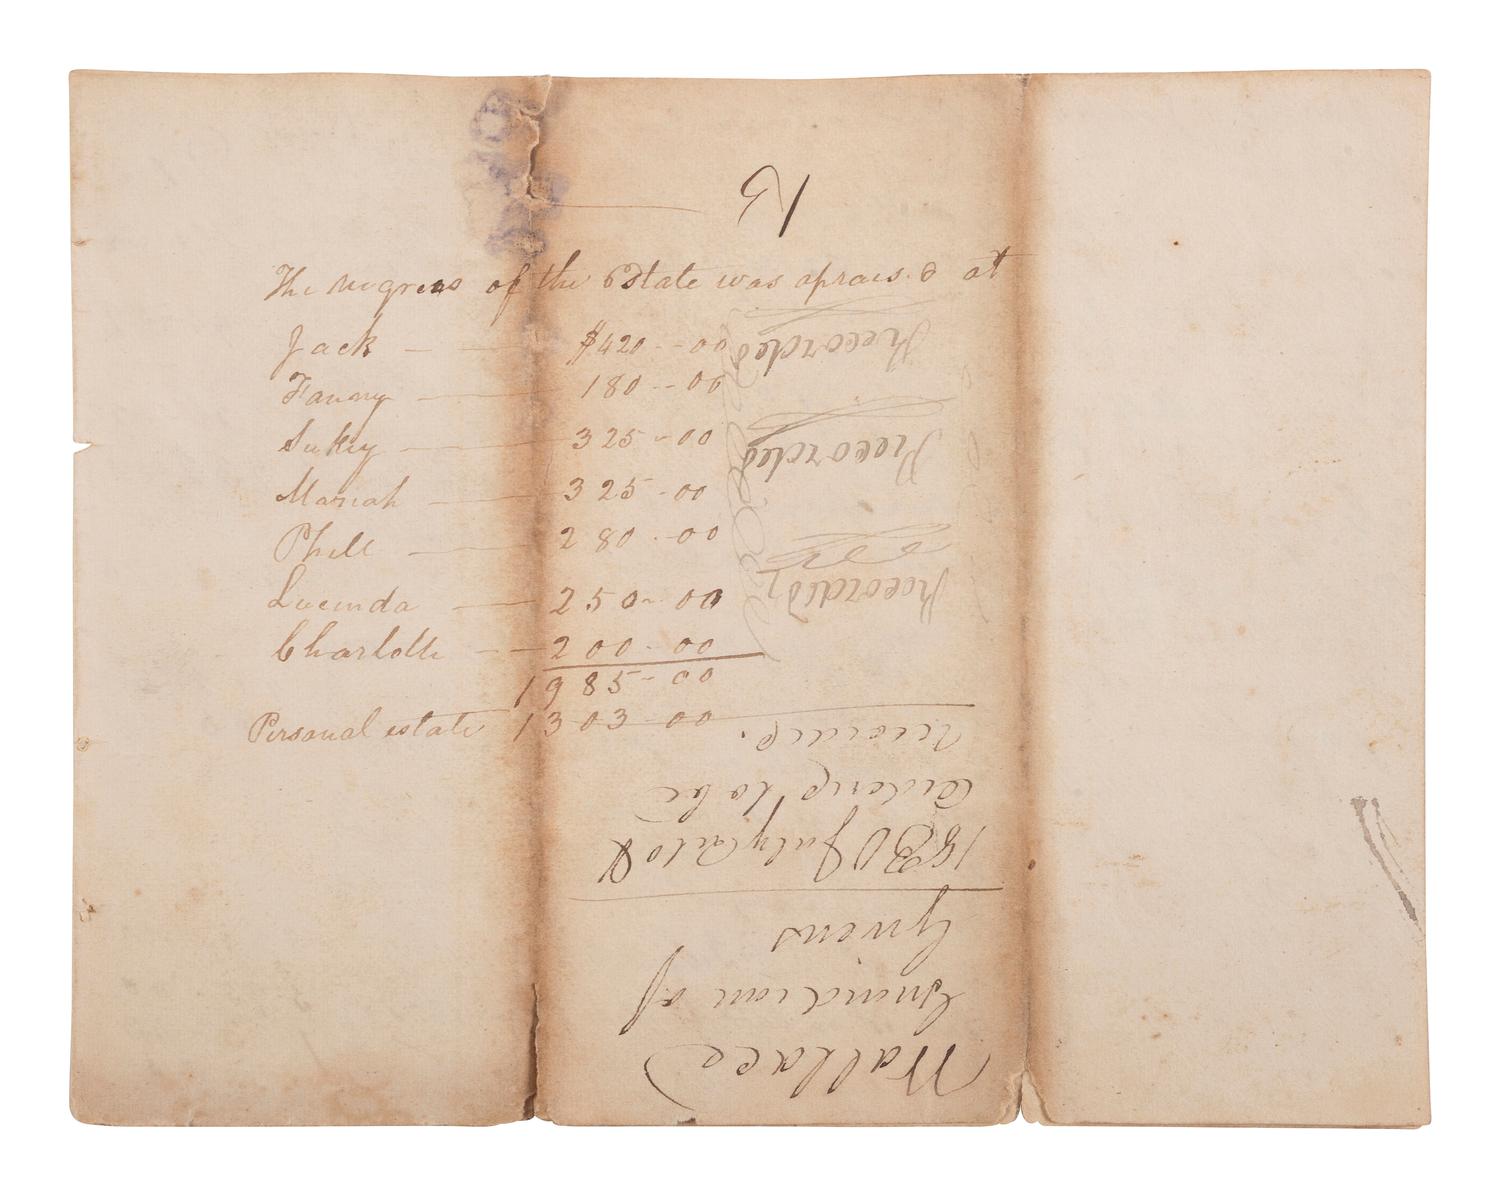 The negroes of the Estate was apraised at
Jack — $420--00
Fanny — 180--00
Sukey — 325-00
Mariah — 325-00
Phill — 280--00
Lucinda — 250-00
Charlotte — 200-00
1985-00
Personal estate 1303-00
Wallace
Guardian of
Givens
1830 July
to be
Recorded
Recorded
Recorded